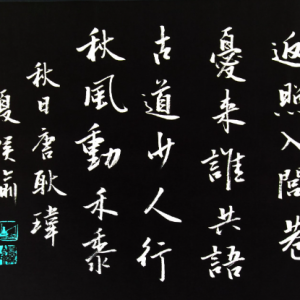 返照入閭巷
憂来誰共語
古道少人行
秋風動禾黍
秋日唐耿瑋
夏侯瀹